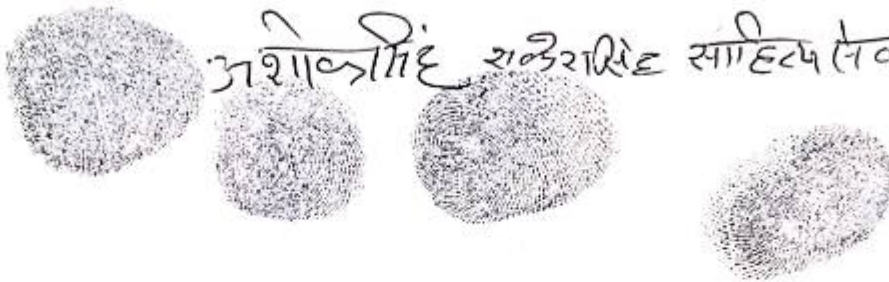 अशोकसिंह राकेशसिंह साहित्य